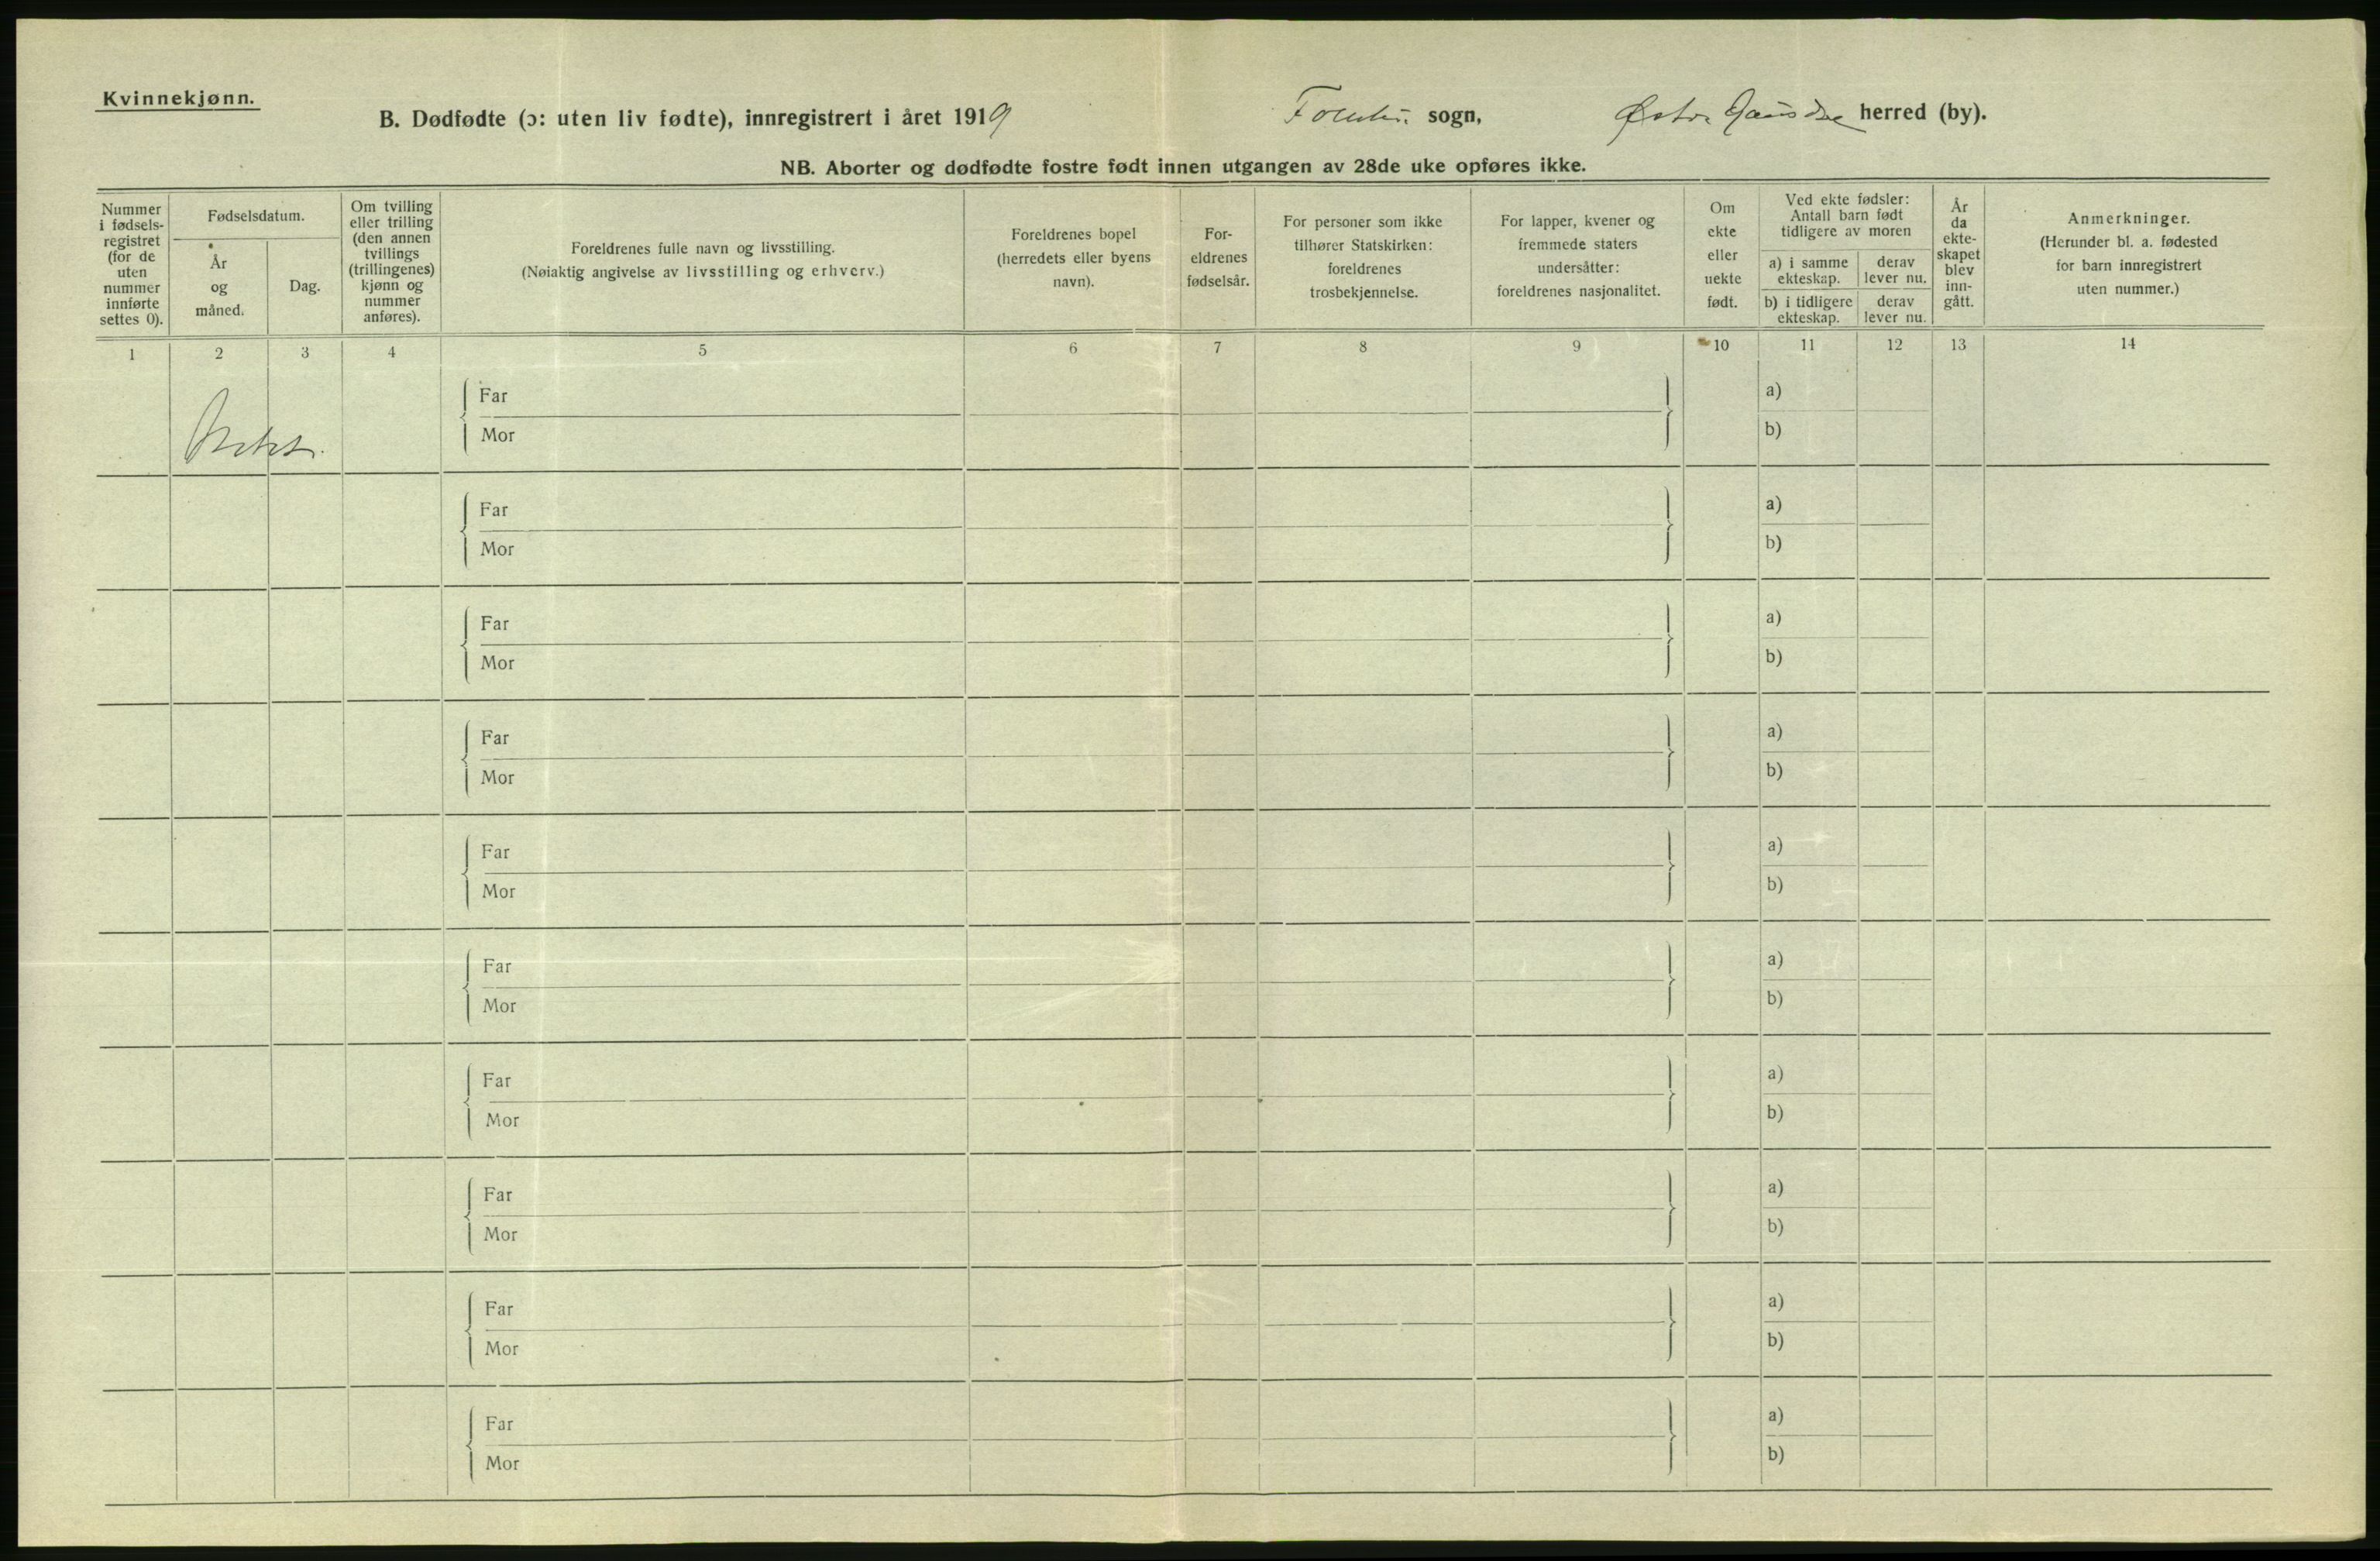 Kvinnekjønn.
B. Dødfødte (ɔ: uten liv fødte), innregistrert i året 1919 sogn, Østre Gausdal herred (by).
NB. Aborter og dødfødte fostre født innen utgangen av 28de uke opføres ikke.
Nummer i fødsels- registret (for de uten nummer innførte settes 0).
Fødselsdatum.
År og måned.
Dag.
Om tvilling eller trilling (den annen tvillings (trillingenes) kjønn og nummer anføres).
Foreldrenes fulle navn og livsstilling.
(Nøiaktig angivelse av livsstilling og erhverv.)
Foreldrenes bopel (herredets eller byens navn).
For- eldrenes fødselsår.
For personer som ikke tilhører Statskirken: foreldrenes trosbekjennelse.
For lapper, kvener og fremmede staters undersåtter: foreldrenes nasjonalitet.
Om ekte eller uekte født.
Ved ekte fødsler: Antall barn født tidligere av moren
a) i samme ekteskap.
derav lever nu.
b) i tidligere ekteskap.
derav lever nu.
År da ekte- skapet blev inn- gått.
Anmerkninger.
(Herunder bl. a. fødested for barn innregistrert uten nummer.)
1 2 3 4 5 6 7 8 9 10 11 12 13 14
Far a)
Mor b)
Far a)
Mor b)
Far a)
Mor b)
Far a)
Mor b)
Far a)
Mor b)
Far a)
Mor b)
Far a)
Mor b)
Far a)
Mor b)
Far a)
Mor b)
Far a)
Mor b)